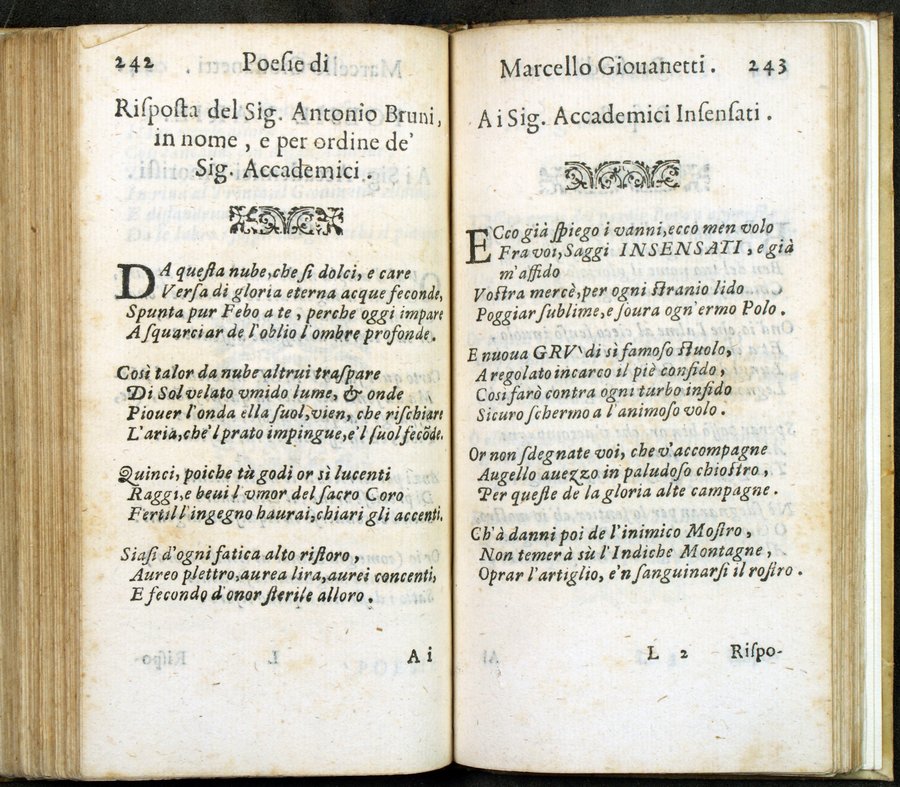 242 Poesie di
Rispoſta del Sig. Antonio Bruni,
in nome, e per ordine de'
Sig. Accademici.
DA queſta nube, che ſi dolci, e care
Verſa di gloria eterna acque feconde,
Spunta pur Febo a te, perche oggi impare
A ſquarciar de l'oblio l'ombre profonde.
Così talor da nube altrui traſpare
Di Sol velato vmido lume, & onde
Piouer l'onda ella ſuol, vien, che riſchiare
L'aria, che'l prato impingue, e'l ſuol fecõde.
Quinci, poiche tù godi or sì lucenti
Raggi, e beui l vmor del ſacro Coro
Fertil l'ingegno haurai, chiari gli accenti.
Siaſi d'ogni fatica alto riſtoro,
Aureo plettro, aurea lira, aurei concenti,
E fecondo d'onor ſterile alloro.
A i
Marcello Giouanetti. 243
A i Sig. Accademici Inſenſati.
ECco già ſpiego i vanni, ecco men volo
Fra voi, Saggi INSENSATI, e già
m'affido
Voſtra mercè, per ogni ſtranio lido
Poggiar ſublime, e ſoura ogn'ermo Polo.
E nuoua GRV' di sì famoſo ſtuolo,
A regolato incarco il piè confido,
Così farò contra ogni turbo infido
Sicuro ſchermo a l'animoſo volo.
Or non ſdegnate voi, che v'accompagne
Augello auezzo in paludoſo chioſtro,
Per queſte de la gloria alte campagne.
Ch'à danni poi de l'inimico Moſtro,
Non temerà sù l'Indiche Montagne,
Oprar l'artiglio, e'n ſanguinarſi il roſtro.
L 2 Riſpo-